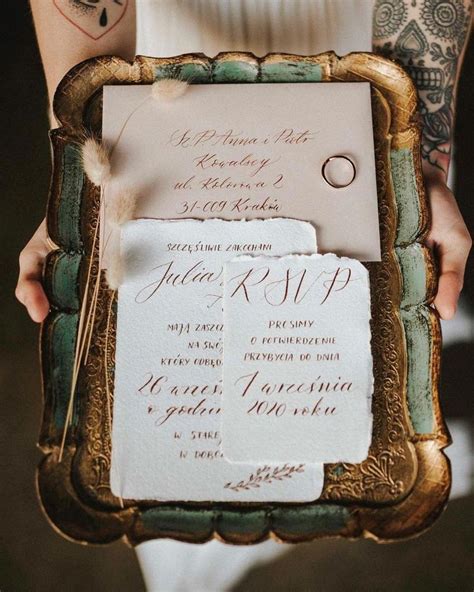 SzP Anna i Piotr
Kowalscy
ul. Kolorowa 2
31-009 Kraków
SZCZĘŚLIWIE ZAKOCHANI
Julia
MAJĄ ZASZCZ
NA SWÓ
KTÓRY ODBĘD
26 wrześ
o godzin
W STAREJ
W DOBC
RSVP
PROSIMY
O POTWIERDZENIE
PRZYBYCIA DO DNIA
1 września
2020 roku